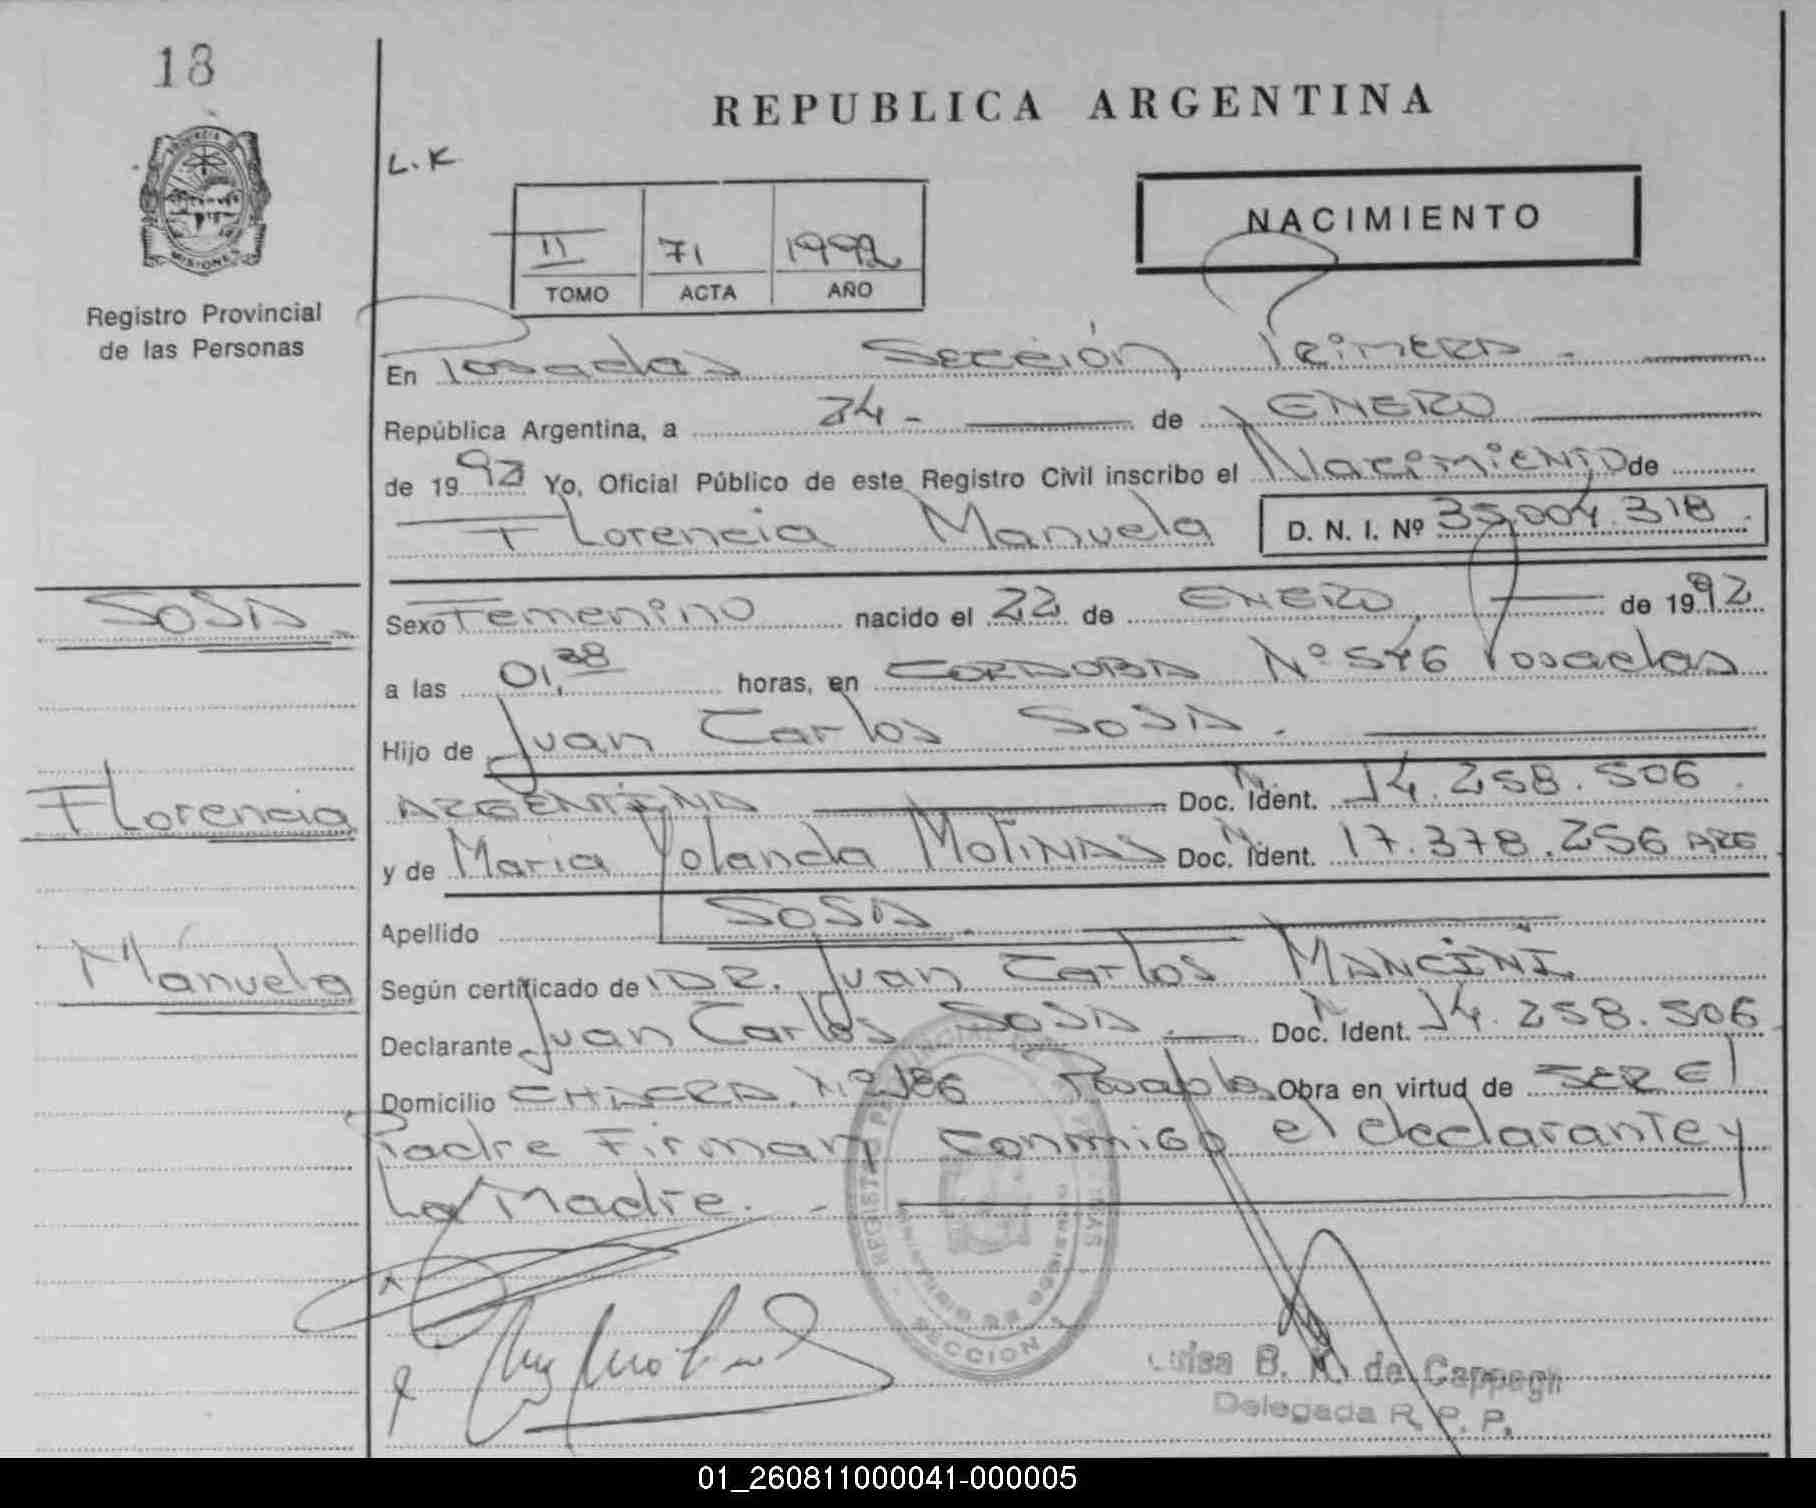 18
PROVINCIA DE
MISIONES
Registro Provincial
de las Personas
REPUBLICA ARGENTINA
L.K
NACIMIENTO
II 71 1992
TOMO ACTA AÑO
En Posadas Sección Primera.
República Argentina, a 24 - de ENERO
de 1992 Yo, Oficial Público de este Registro Civil inscribo el Nacimiento de
Florencia Manuela D. N. I. Nº 35.004.318.
SOSA. Sexo Femenino nacido el 22 de ENERO de 1992
a las 01,38 horas, en CORDOBA Nº 546 Posadas
Hijo de Juan Carlos SOSA.
Florencia ARGENTINA Doc. Ident. N. 14.258.506.
y de Maria Yolanda MOLINAS Doc. Ident. N. 17.378.256 ARG
Apellido SOSA.
Manuela Según certificado de DR. Juan Carlos MANCINI.
Declarante Juan Carlos SOSA. Doc. Ident. N 14.258.506
Domicilio CHACRA. Nº 186 Posadas Obra en virtud de SER El
Padre Firman conmigo el declarante y
La Madre. -
REGISTRO
MINISTERIO DE GOBIERNO
SECCION 1
Luisa B. N. de Cappagli
Delegada R. P. P.
01_260811000041-000005